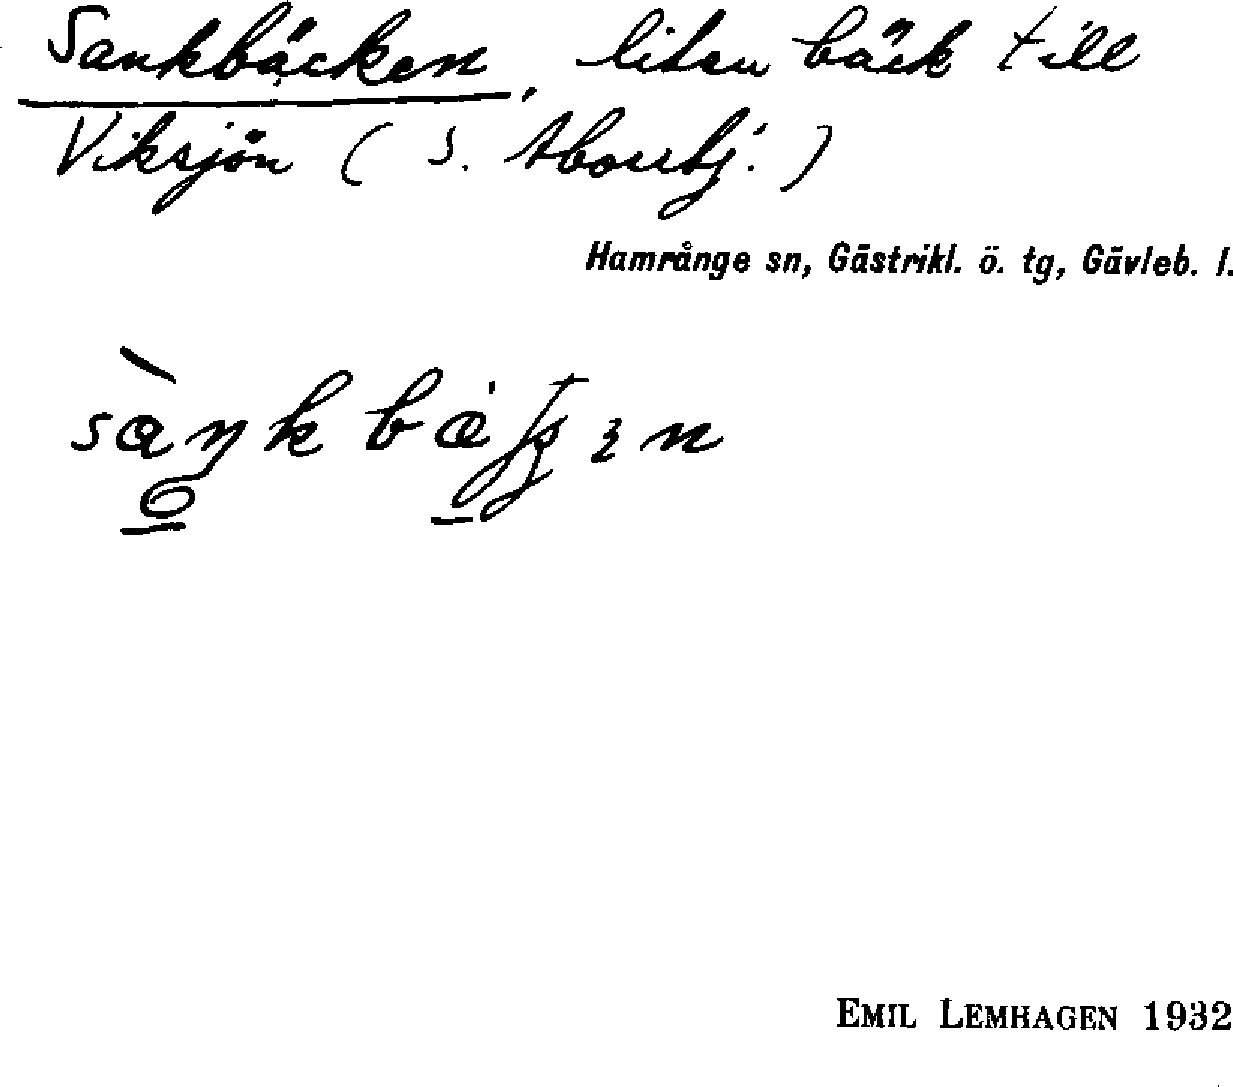 Sankbäcken, liten bäck till
Viksjön ( s. Abortj. )
Hamrånge sn, Gästrikl. ö. tg, Gävleb. l.
EMIL LEMHAGEN 1932